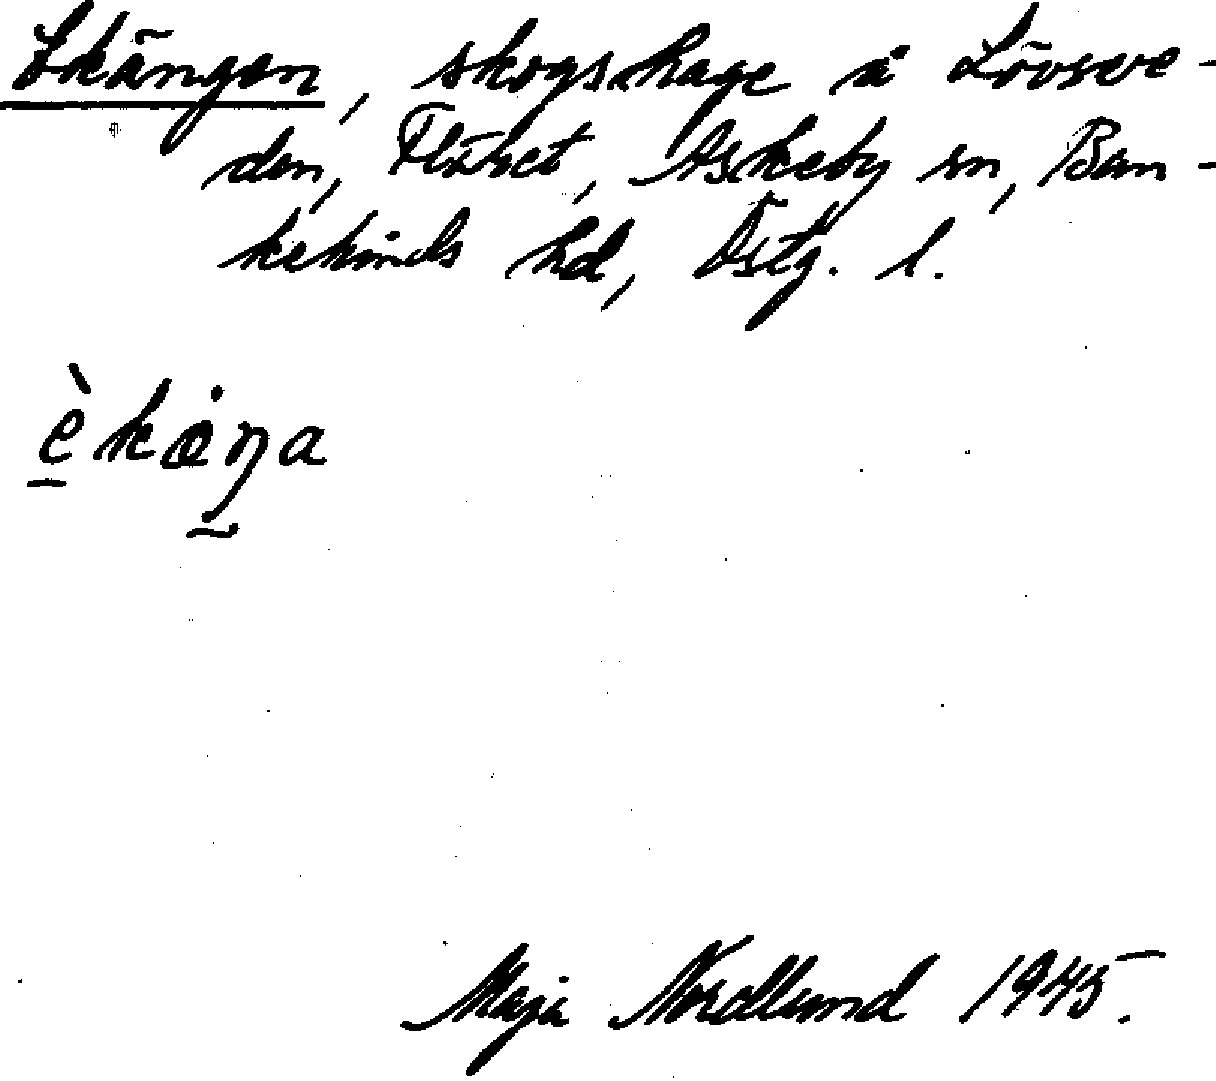 Ekängen, skogshage å Lövsve-
den, Fläret, Askeby sn, Ban-
kekinds hd, Östg. l.
Maja Nordlund 1945.